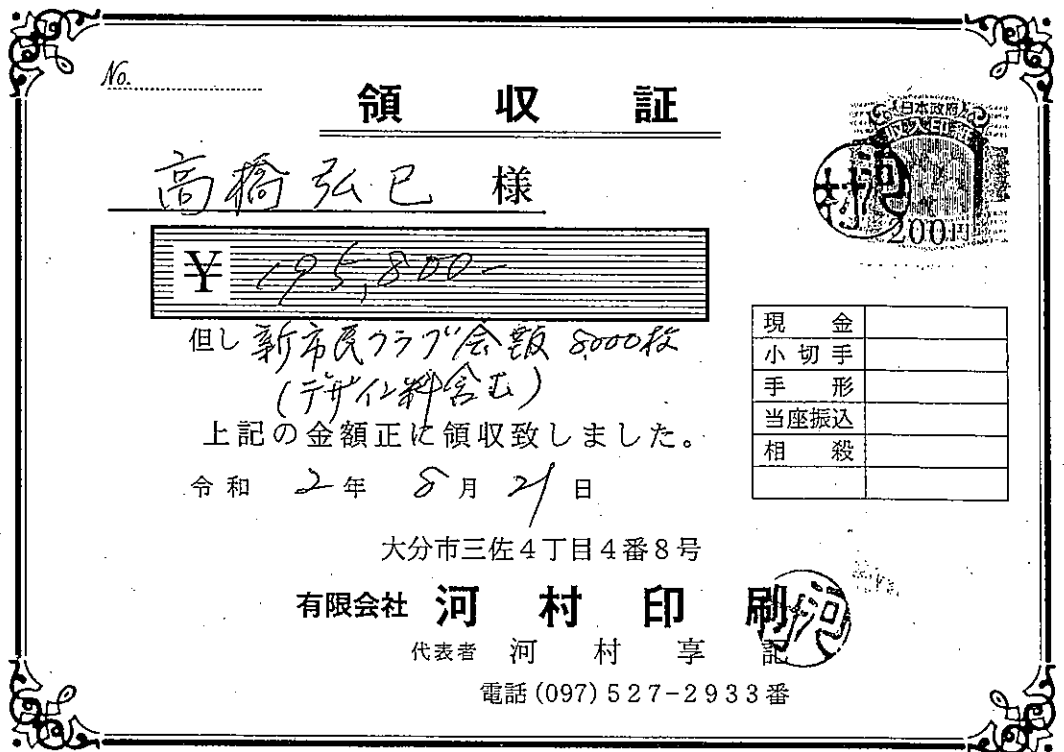 No.
領収証
高橋弘巳 様
日本政府
収入印紙
200円
河村
¥ 195,800-
但し 新市民クラブ会報 8000枚
(デザイン料含む)
上記の金額正に領収致しました。
令和 2年 8月 21日
現金
小切手
手形
当座振込
相殺
大分市三佐4丁目4番8号
有限会社 河村印刷
代表者 河村享記
河村
電話(097)527-2933番